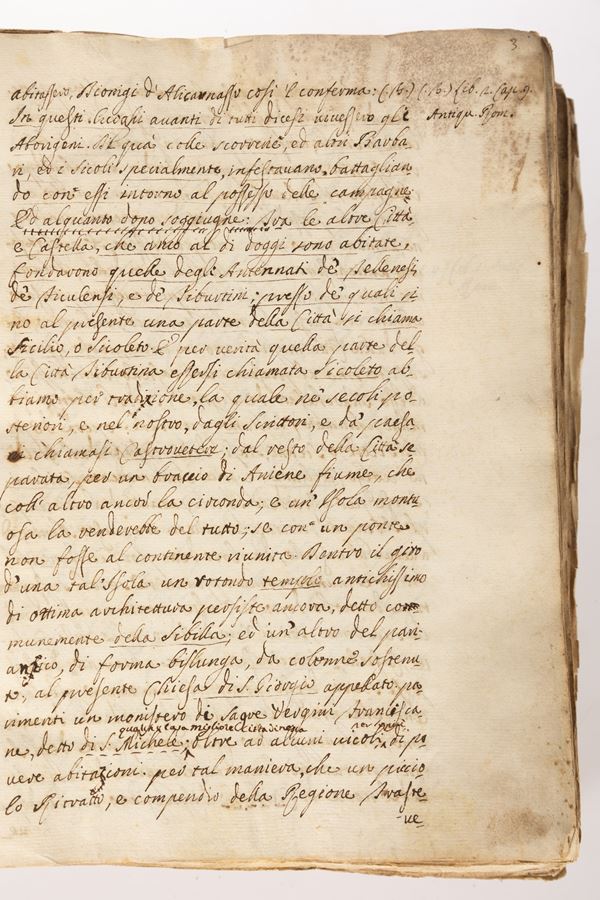 3
abitassero, Dionigi d'Alicarnasso così 'l conferma: (16.) (16.) Lib. 1. Cap. 9.
In questi luoghi avanti di tutti dicesi vivessero gli Antiqu. Rom.
Aborigeni. Di quà colle scorrerie, ed altri Barba-
ri, ed i Sicoli specialmente, infestavano, battaglian-
do con essi intorno al possesso delle campagne.
Ed alquanto dopo soggiugne: Tra le altre Città,
e Castella, che anco al dì d'oggi sono abitate,
fondarono quelle degli Antennati de' Tellenesi,
de' Ficulensi, e de' Tiburtini; presso de' quali fi-
no al presente una parte della Città si chiama
Sicilio, o Sicoleto. E per verità quella parte del-
la Città Tiburtina essersi chiamata Sicoleto ab-
biamo per tradizione, la quale ne' secoli po-
steriori, e nel nostro, dagli Scrittori, e da' paesa-
ni chiamasi Castrovetere; dal resto della Città se-
parata, per un braccio di Aniene fiume, che
coll'altro ancor la circonda; e un'Isola montu-
osa la renderebbe del tutto; se con un ponte
non fosse al continente riunita. Dentro il giro
d'una tal'Isola un rotondo tempio antichissimo
di ottima architettura persiste ancora, detto com-
munemente della Sibilla; ed un'altro del pari
antico, di forma bislunga, da colonne sostenu-
to, al presente Chiesa di S. Giorgio appellato. pa-
rimenti un monistero di Sagre Vergini Francisca-
ne, detto di S. Michele; oltre ad alcuni vicoli, di po-
vere abitazioni. per tal maniera, che un picco-
lo Ritratto, e compendio della Regione Traste-
ve-